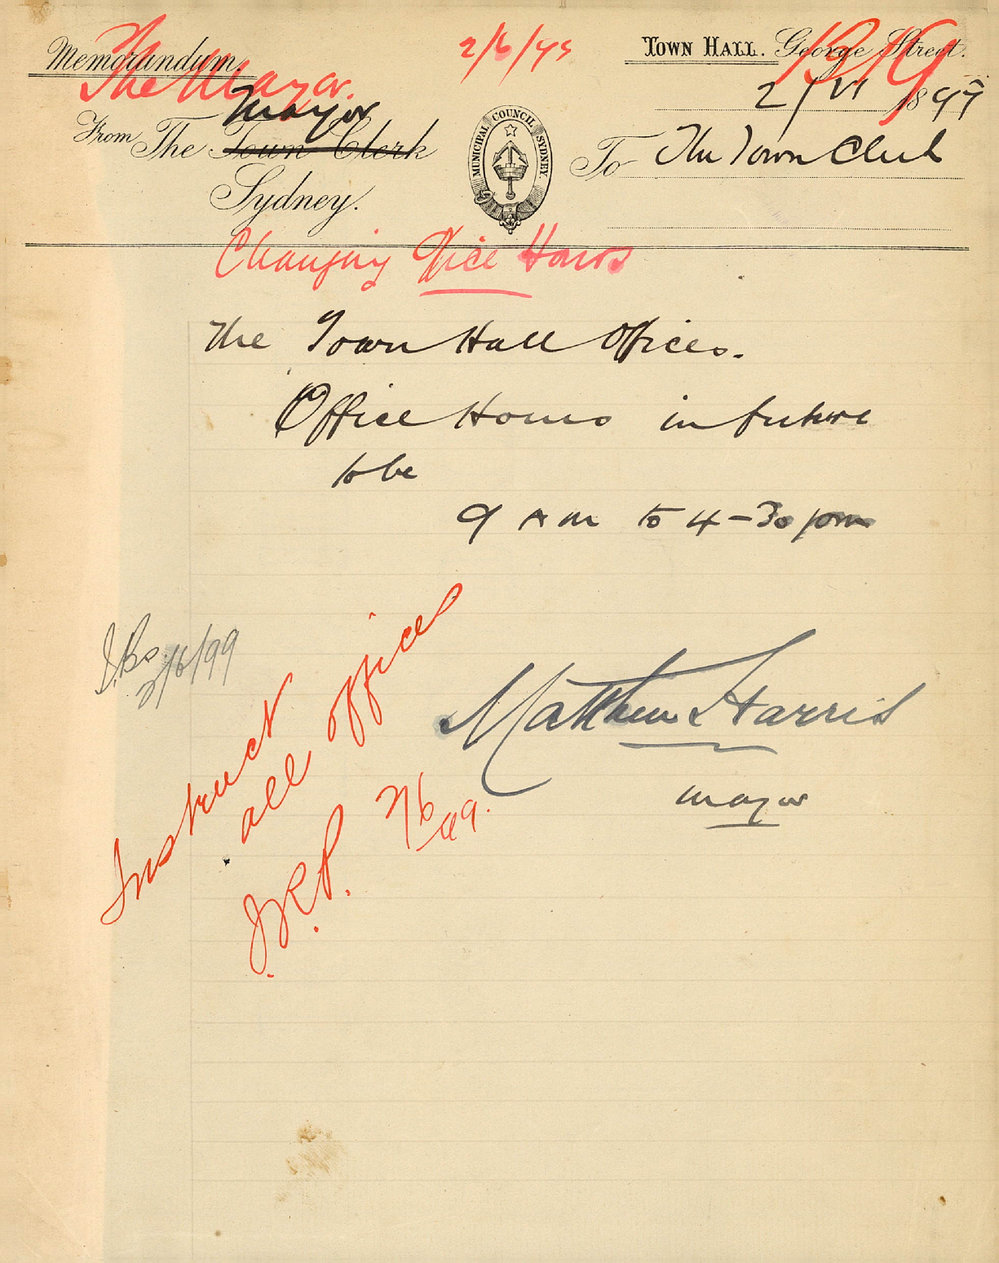 Memorandum.
The Mayor.
2/6/99
TOWN HALL. George Street.
1319
2/VI 1899
From The Town Clerk
Mayor
Sydney.
MUNICIPAL COUNCIL SYDNEY.
To The Town Clerk
Changing Office Hours
The Town Hall Offices.
Office Hours in future
to be
9 am to 4-30 pm
2/6/99
Matthew Harris
Mayor
Instruct
all offices
J.R.P. 2/6/99.